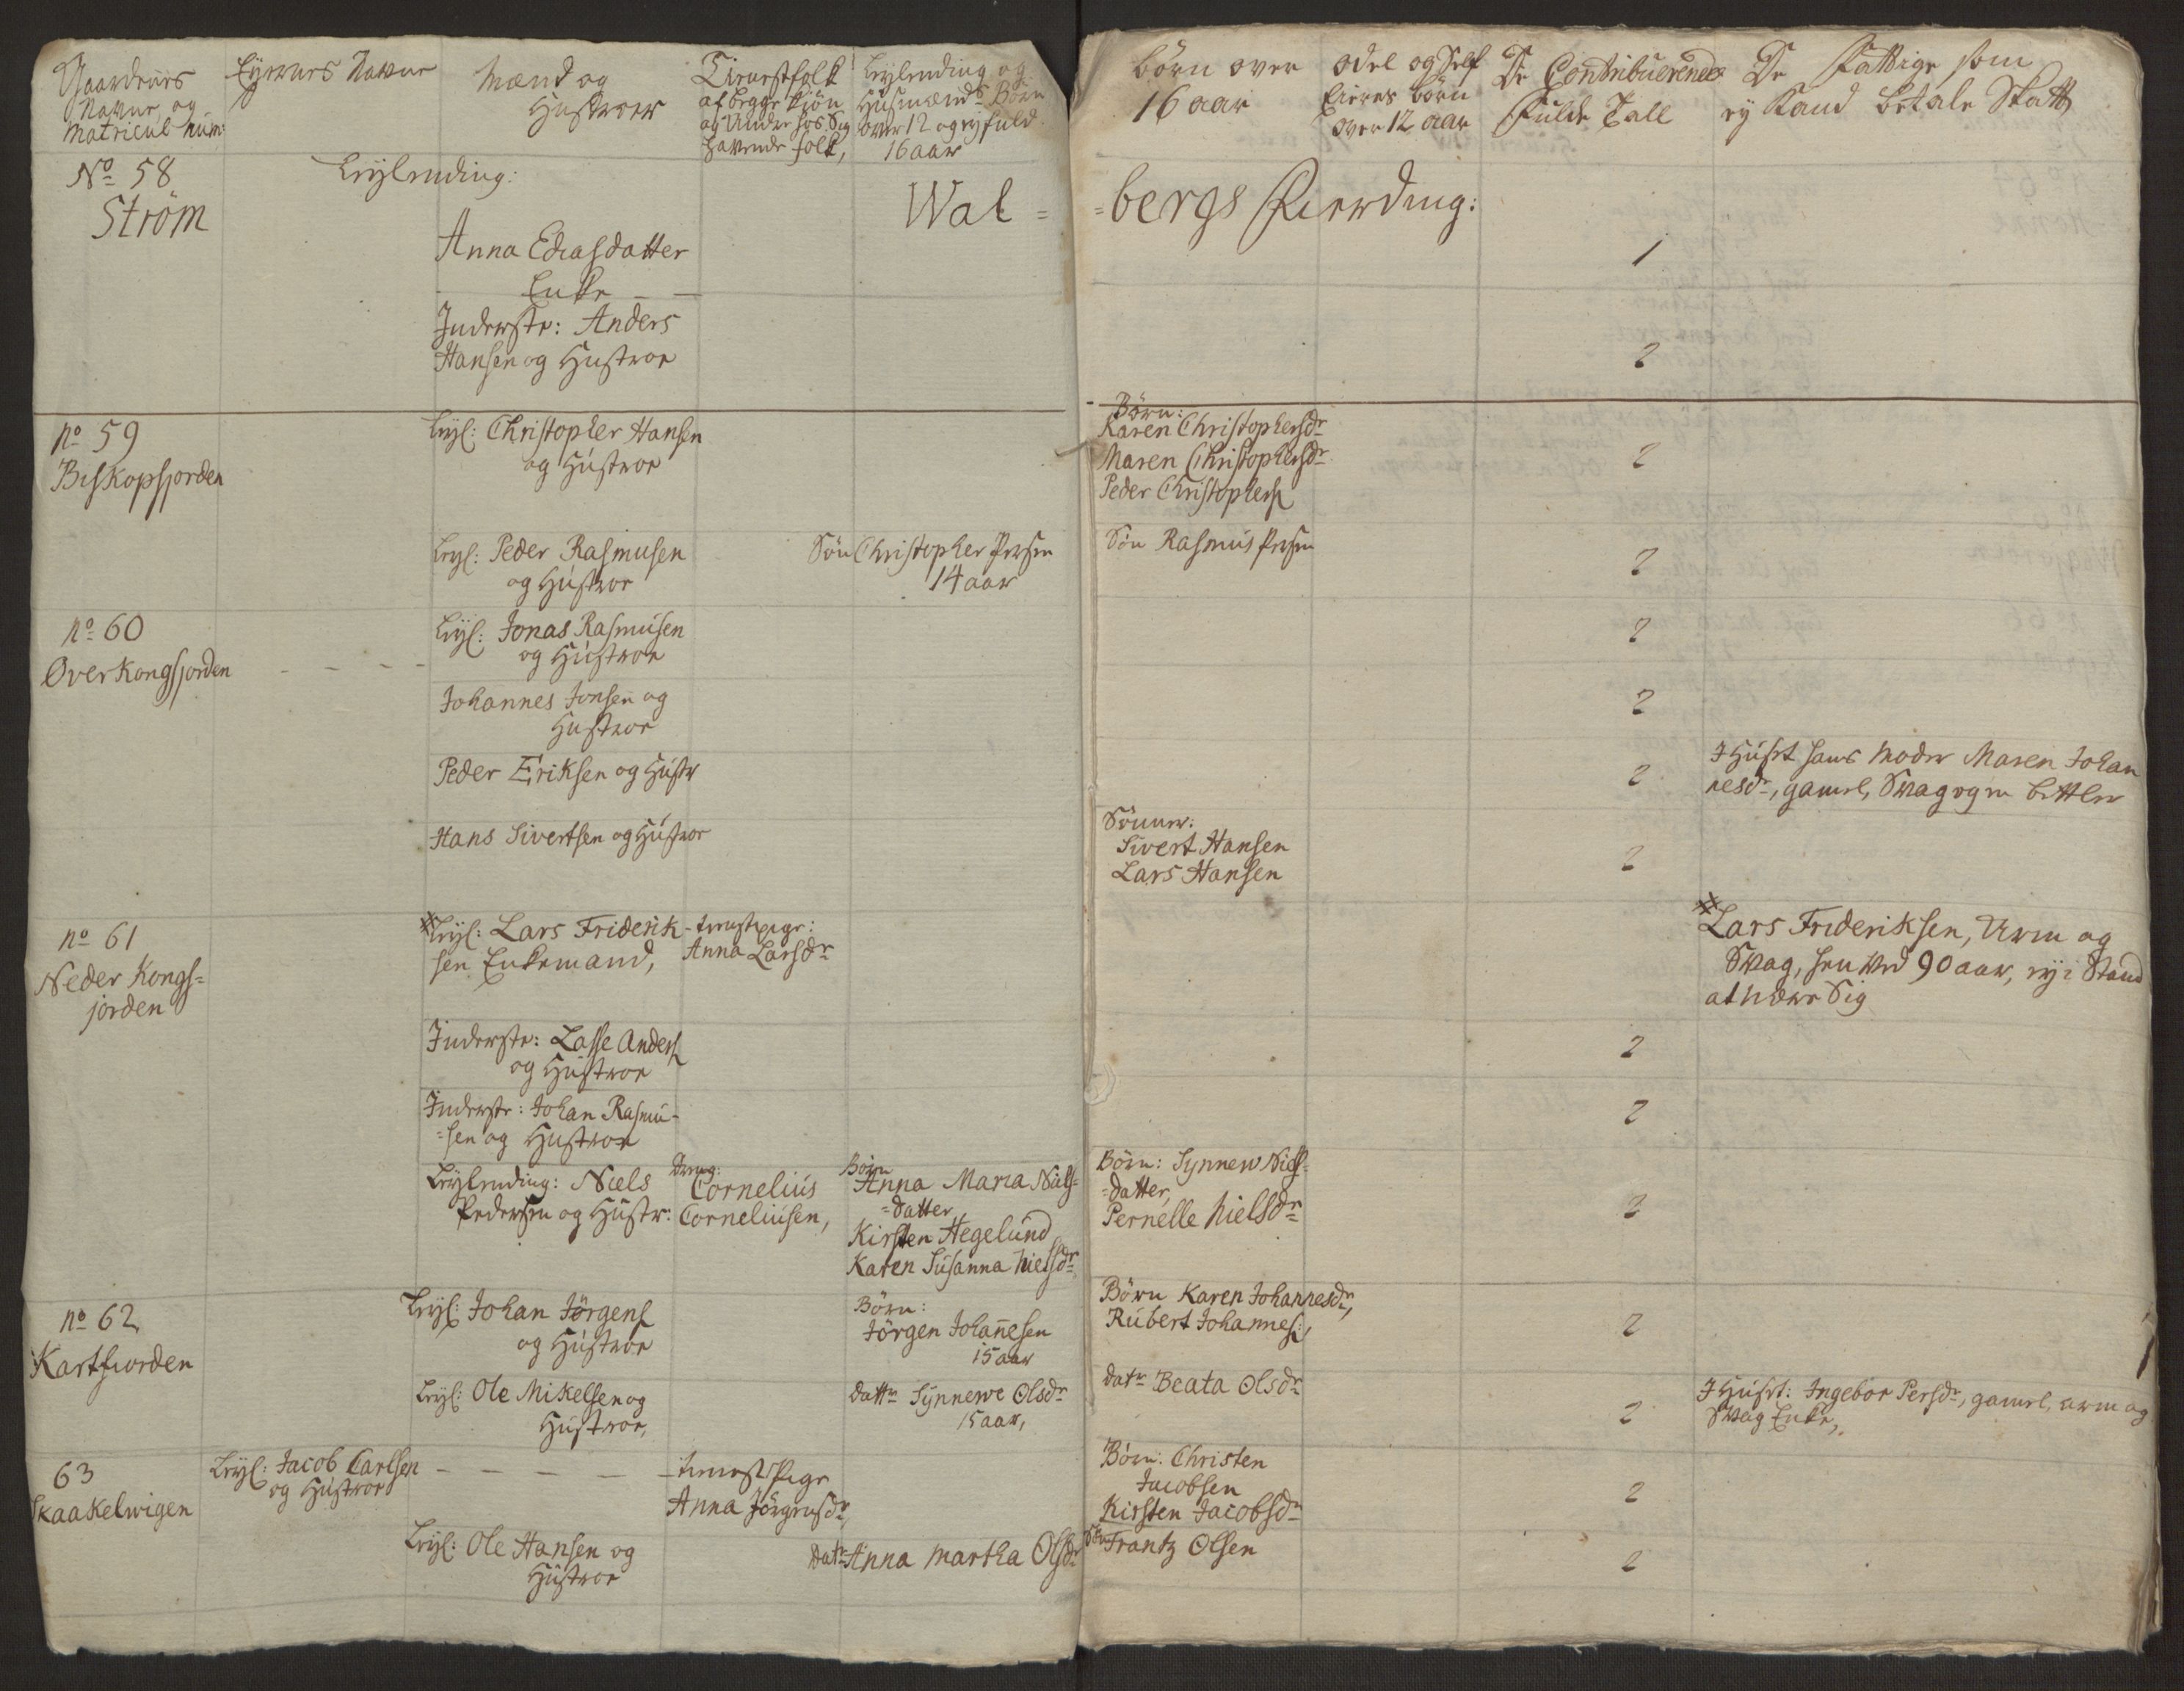 Gaardenes
Navne og
Matricul Núm:
Eyernes Navne
Mænd og
Hustroer
Tienestfolk
af begge kiön
og Andre hos Sig
havende folk,
Leylending og
Húsmænds Börn
over 12 og ey fuld
16 aar
börn over
16 aar
Odel og Self
Eieres börn
over 12 aar
De Contribuerende
Fulde Tall
De Fattige som
ey Kand betale Skatt
No 58
Ström
Leylending:
Wal =
=bergs Fierding:
Anna Ediasdatter
Enke
1
Inderste: Anders
Hansen og Hustroe
2
no 59
Biskopsjorden
Leyl: Christopher Hansen
og Hústroe
Börn:
Karen Christophersdr
Maren Christophersdr
Peder Christophers
2
Leyl: Peder Rasmusen
og Hústroe
Sön Christopher Persen
14 aar
Sön Rasmús Persen
2
no 60
Over Kongsjorden
Leyl: Jonas Rasmúsen
og Hústroe
2
Johannes Jonsen og
Hustroe
2
Peder Eriksen og Hústr
2
I Húset hans Moder Maren Johan
nesdr, gamel, Svag og en betler
Hans Sivertsen og Hústroe
Sönner:
Sivert Hansen
Lars Hansen
2
no 61
Neder Kongs=
jorden
Leyl: Lars Friderik
sen Enkemand,
- tienestpige:
Anna Larsdr
Lars Frideriksen, Arm og
Svag, hen ved 90 aar, ey i Stand
at nære Sig
Inderste: Lasse Anders
og Hústroe
2
Inderste: Johan Rasmú-
=sen og Hustroe
2
Leylending: Niels
Pedersen og Hústr:
Dreng:
Cornelius
Corneliusen,
Börn
Anna Maria Niels=
=datter
Kirsten Hegelúnd
Karen Súsanna Nielsdr
Börn: Synnew Niels=
=datter,
Pernelle Nielsdr
2
no 62
Kartfiorden
Leyl: Johan Jörgens
og Hústroe
Börn:
Jörgen Johañesen
15 aar
Börn Karen Johannesdr,
Rúbert Johannes,
2
Leyl: Ole Mikelsen og
Hústroe,
Dattr Synnewe Olsdr
15 aar,
Datr Beata Olsdr
2
I Húset: Ingebor Persdr, gamel, arm og
Svag Enke,
63
Skaakelwigen
Leyl: Jacob Carlsen
og Hústroe
- tienest Pige
Anna Jörgensdr
Börn: Christen
Jacobsen
Kirsten Jacobsdr
2
Leyl: Ole Hansen og
Hústroe
Datr Anna Martha Olsdr
Sön Frantz Olsen
2